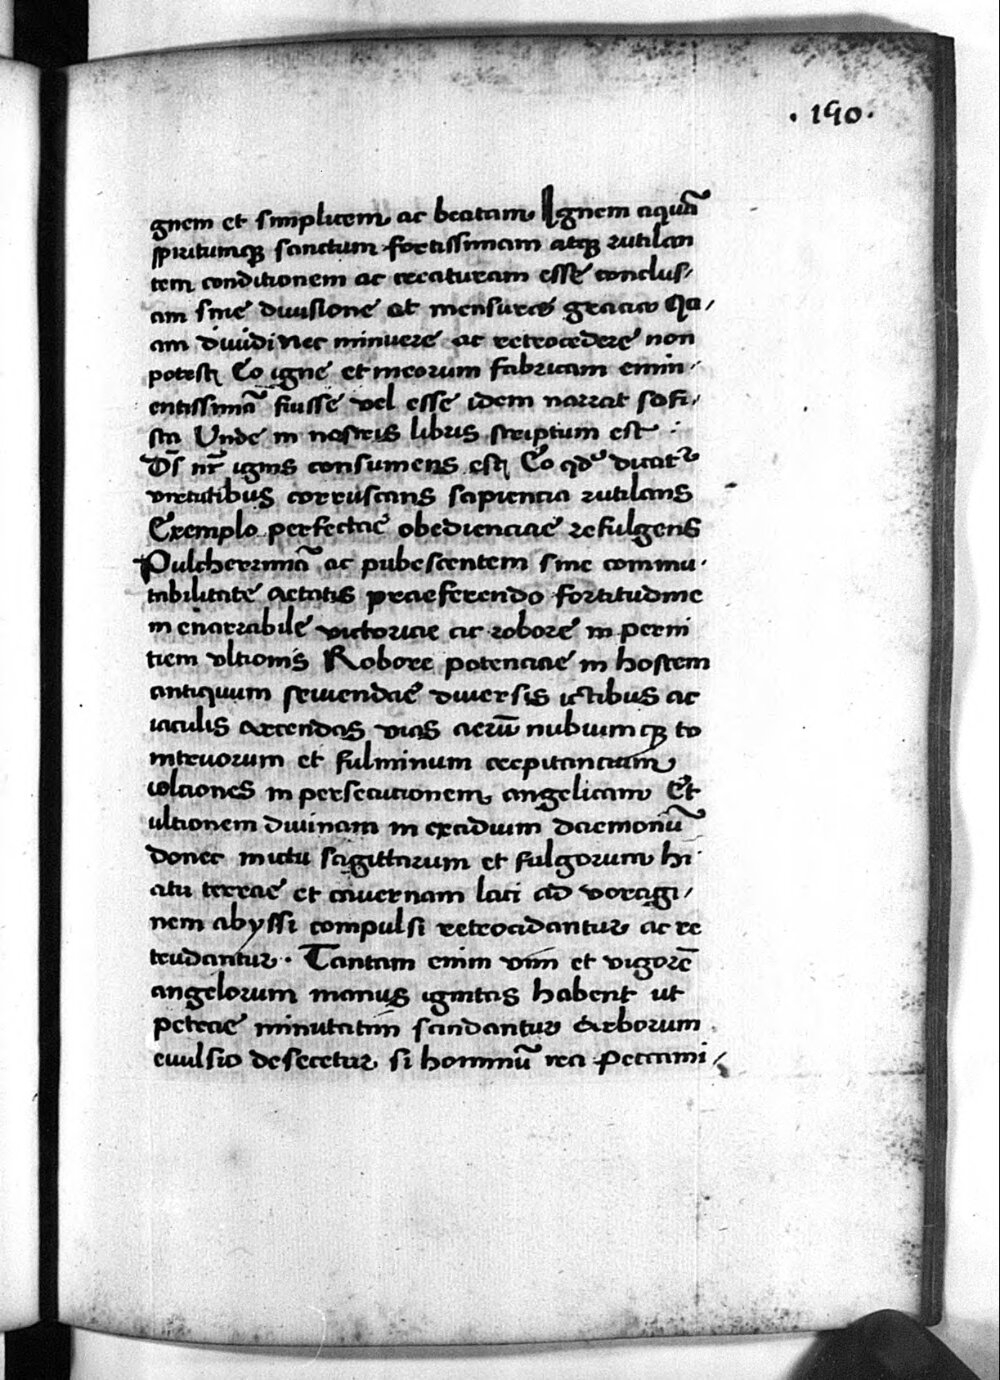 · 190 ·
gnem et simplicem ac beatam Ignem aquā
spiritumqꝫ sanctum fortissimam atqꝫ rutilan
tem conditionem ac creaturam esse conclus/
am sine diuisione at mensurae graciae Qu/
am diuidi nec minuere ac retrocedere non
potest Eo igne et meorum fabricam emin/
entissimā fuisse vel esse idem narrat sofi/
sta Unde in nostris libris scriptum est :
D̄s nr̄ ignis consumens est Eo qd dicat
virtutibus corruscans sapiencia rutilans
Exemplo perfectae obedienciae refulgens
Pulcherrimā ac pubescentem sine commu·
tabilitate aetatis praeferendo fortitudine
inenarrabile victoriae ac robore in perni
tiem vltionis Robore potenciae in hostem
antiquum seuiendae diuersis ictibus ac
iaculis arcendas vias aerū nubiumqꝫ to
nitruorum et fulminum crepitancium
in persecucionem angelicam Et
ultionem diuinam in excidium daemonū
donec mictu sagittarum et fulgorum hi·
atu terrae et cauernam laci ad voragi/
nem abyssi compulsi retrocidantur ac re
trudantur · Tantam enim vim et vigorē
angelorum manus ignitas habent ut
petrae minutatim scindantur Arborum
euulsio desecetur si hominū rea peccami/